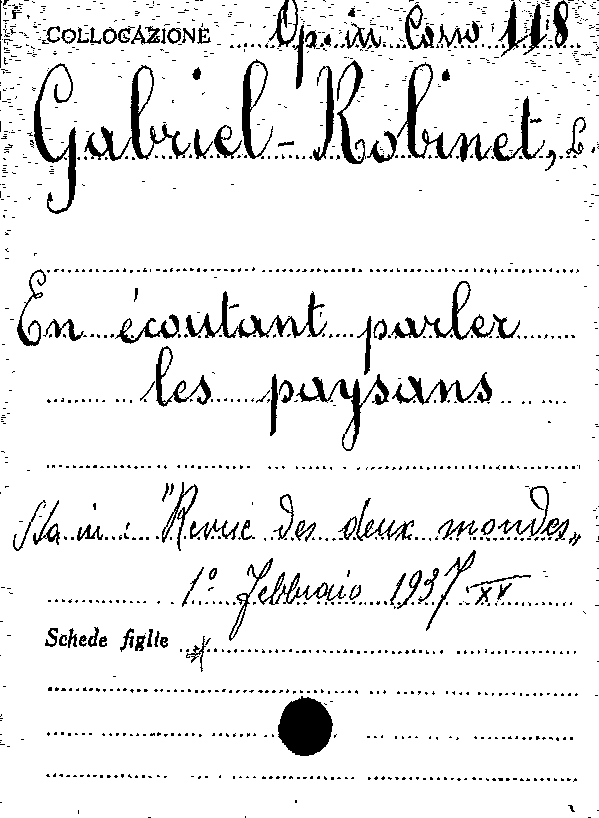 COLLOCAZIONE Op. in Corso 118
Gabriel-Robinet, L.
En écoutant parler
les paysans
Sta in: "Revue des deux mondes„
1º Febbraio 1937 XV
Schede figlie *